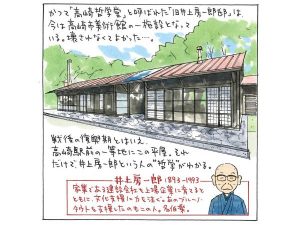 かつて「高崎哲学堂」と呼ばれた「旧井上房一郎邸」は
今は高崎市美術館の一施設となって
いる。壊されなくてよかった…。
戦後の復興期とはいえ
高崎駅前の一等地にこの平屋。それ
だけで井上房一郎という人の“哲学”がわかる。
井上房一郎 1893-1993
家業である建設会社を上場企業に育てると
ともに、文化支援に力を注ぐ。あのブルーノ・
タウトを支援したのもこの人。名伯楽。